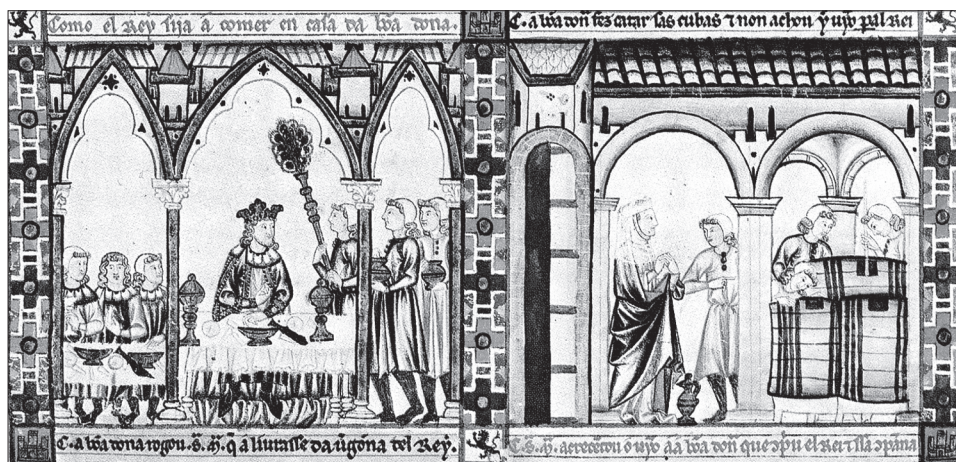 Como el Rey sija a comer en casa da bõa dona.
C. a bõa dõn fez catar sas cubas ⁊ non achou y uỹo pal Rei
C. a bõa dona rogou. S. M. q̃ a liurasse da ũgonna del Rey.
C. S. M. acrecentou o uỹo aa bõa dõn que ↄpriu el Rei ⁊ ssa